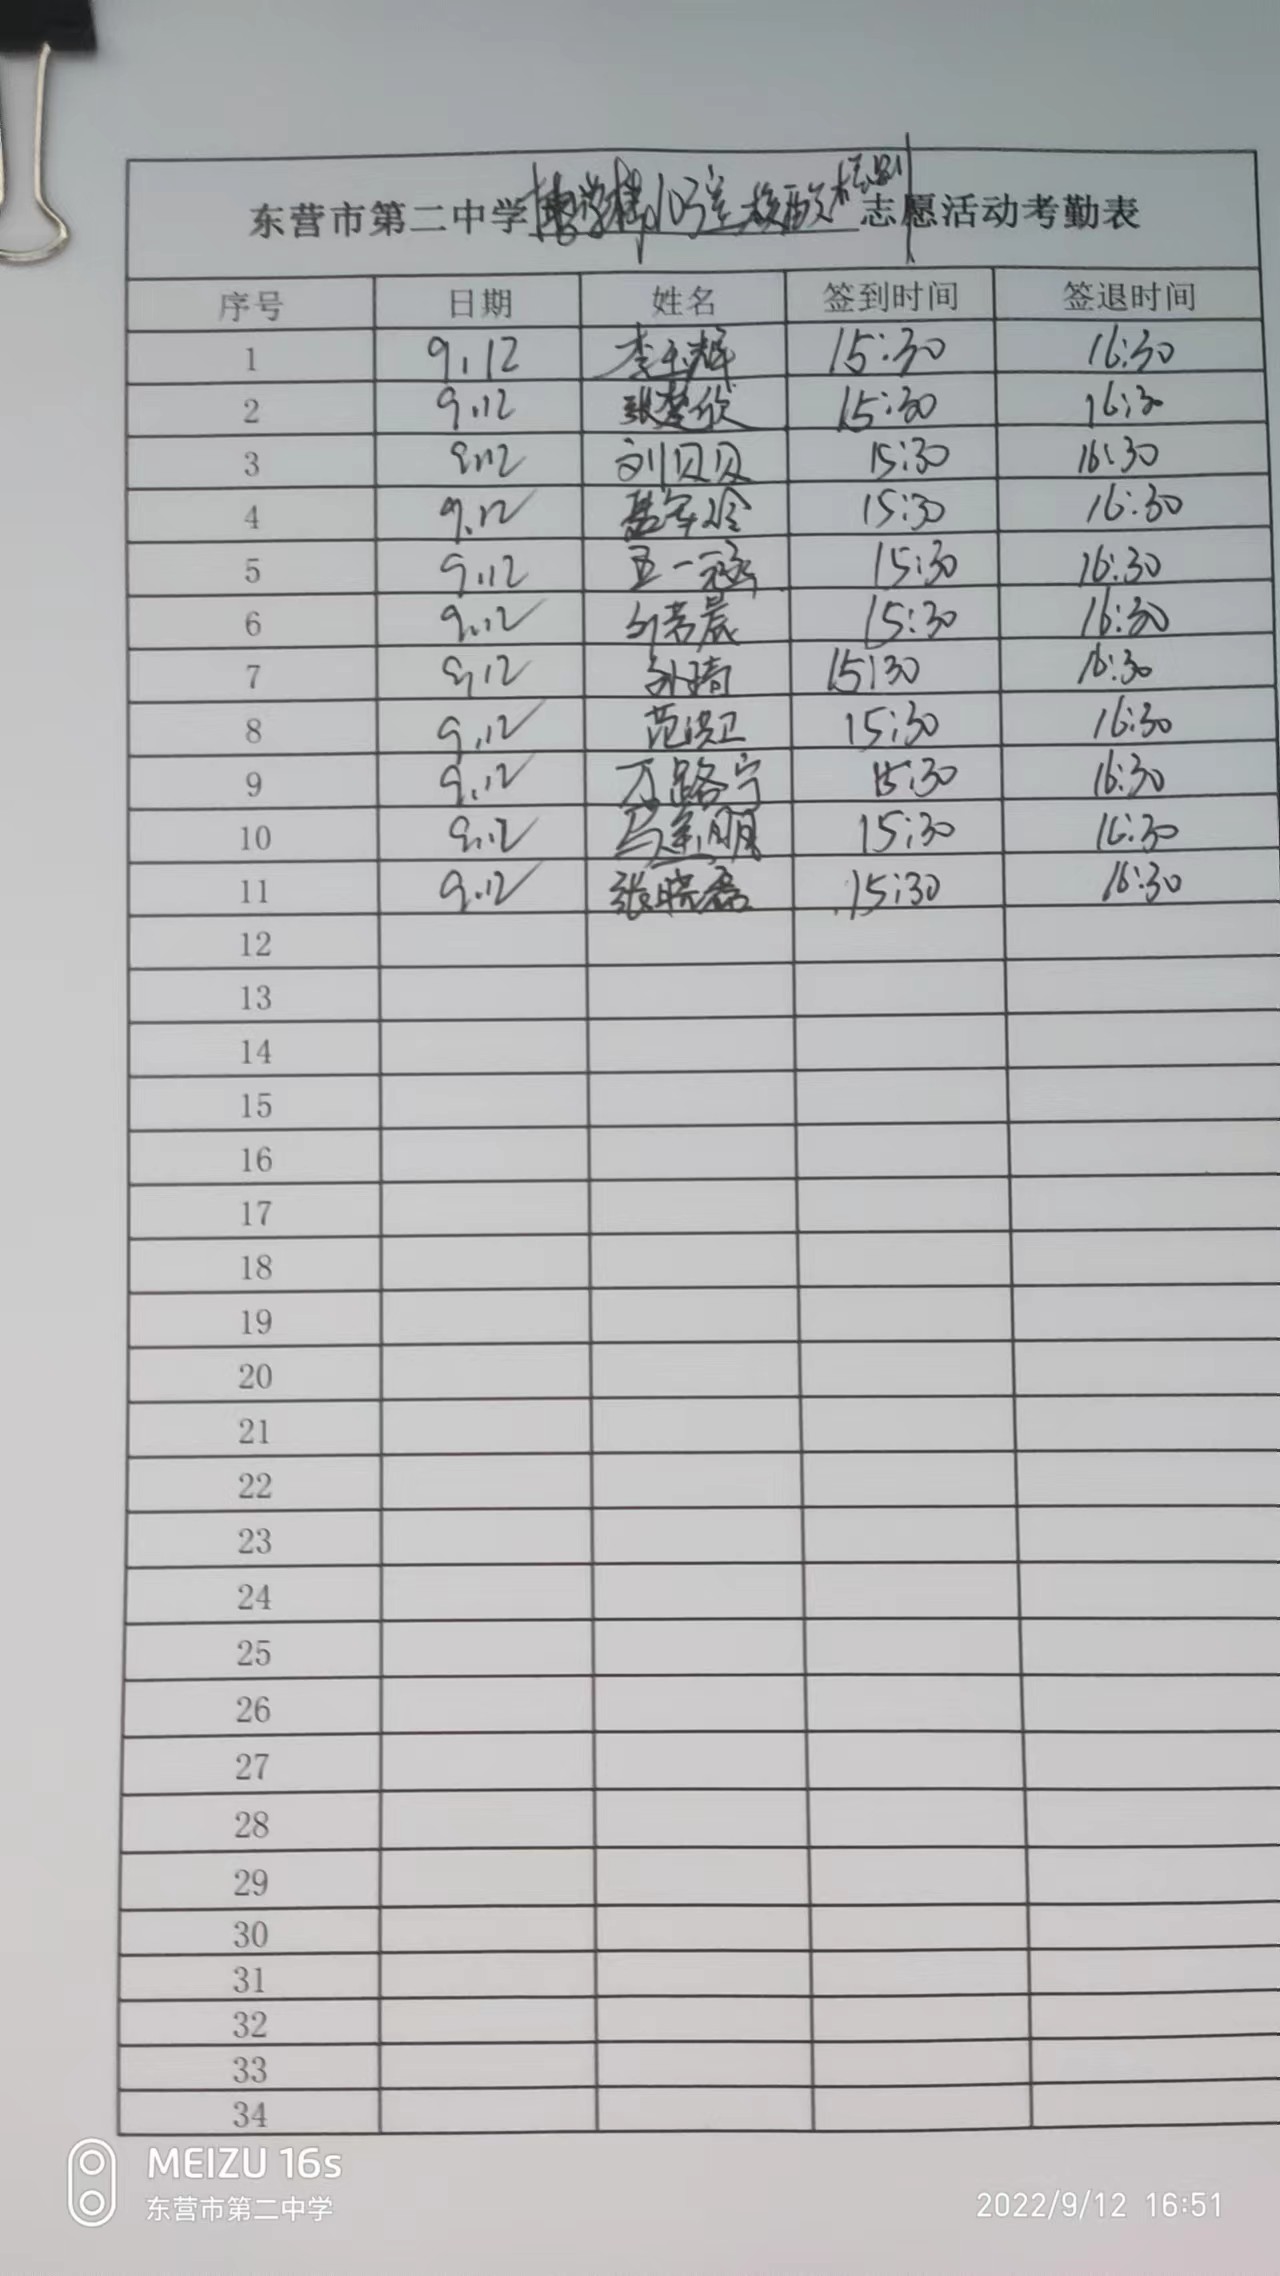 东营市第二中学博学楼103室核酸检测志愿活动考勤表
序号 日期 姓名 签到时间 签退时间
1 9.12 李玉辉 15:30 16:30
2 9.12 张楚欣 15:30 16:30
3 9.12 刘贝贝 15:30 16:30
4 9.12 15:30 16:30
5 9.12 王一涵 15:30 16:30
6 9.12 15:30 16:30
7 9.12 孙琦 15:30 16:30
8 9.12 范洪卫 15:30 16:30
9 9.12 万路宁 15:30 16:30
10 9.12 15:30 16:30
11 9.12 张晓磊 15:30 16:30
12
13
14
15
16
17
18
19
20
21
22
23
24
25
26
27
28
29
30
31
32
33
34
MEIZU 16s
东营市第二中学
2022/9/12 16:51